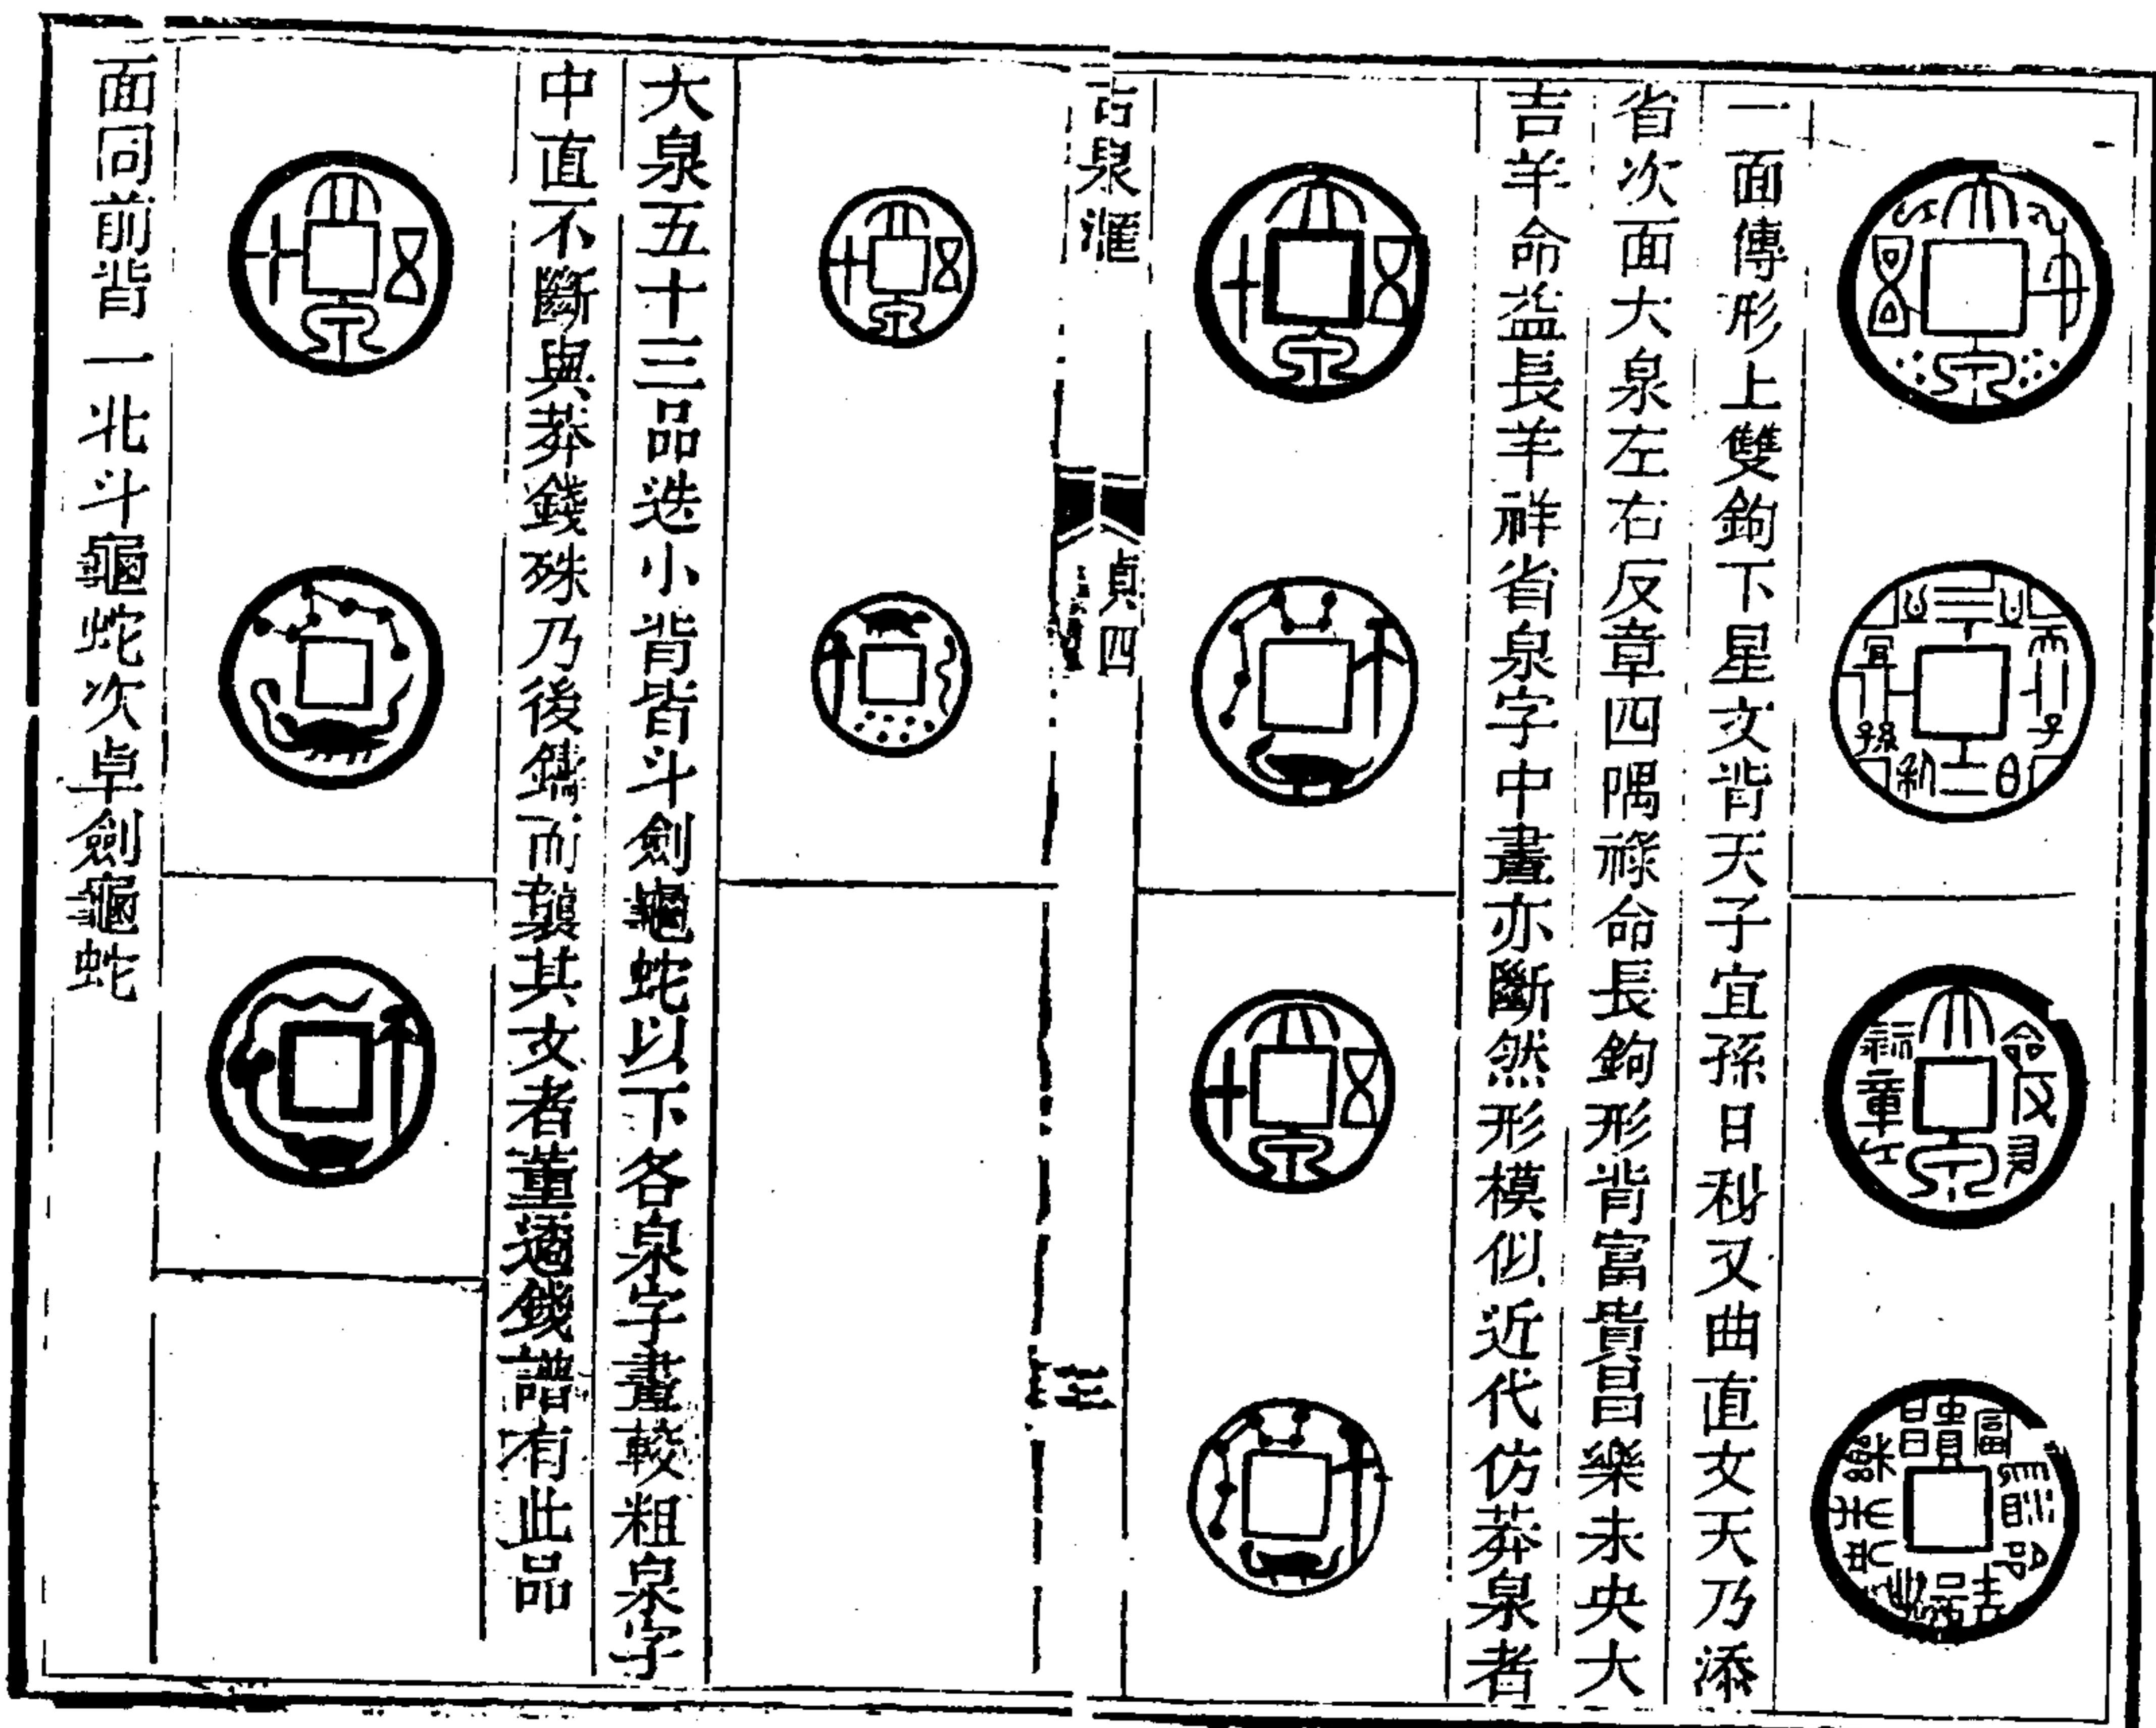 一面傳形上雙鉤下星文背天子宜孫日利又曲直文天乃添
省次面大泉左右反章四隅祿命長鉤形背富貴昌樂未央大
吉羊命益長羊祥省泉字中畫亦斷然形模似近代仿莽泉者
古泉滙
貞四
大泉五十三品迭小背皆斗劍龜蛇以下各泉字畫較粗泉字
中直不斷與莽錢殊乃後鑄而襲其文者董逌錢譜有此品
面同前背一北斗龜蛇次卓劍龜蛇